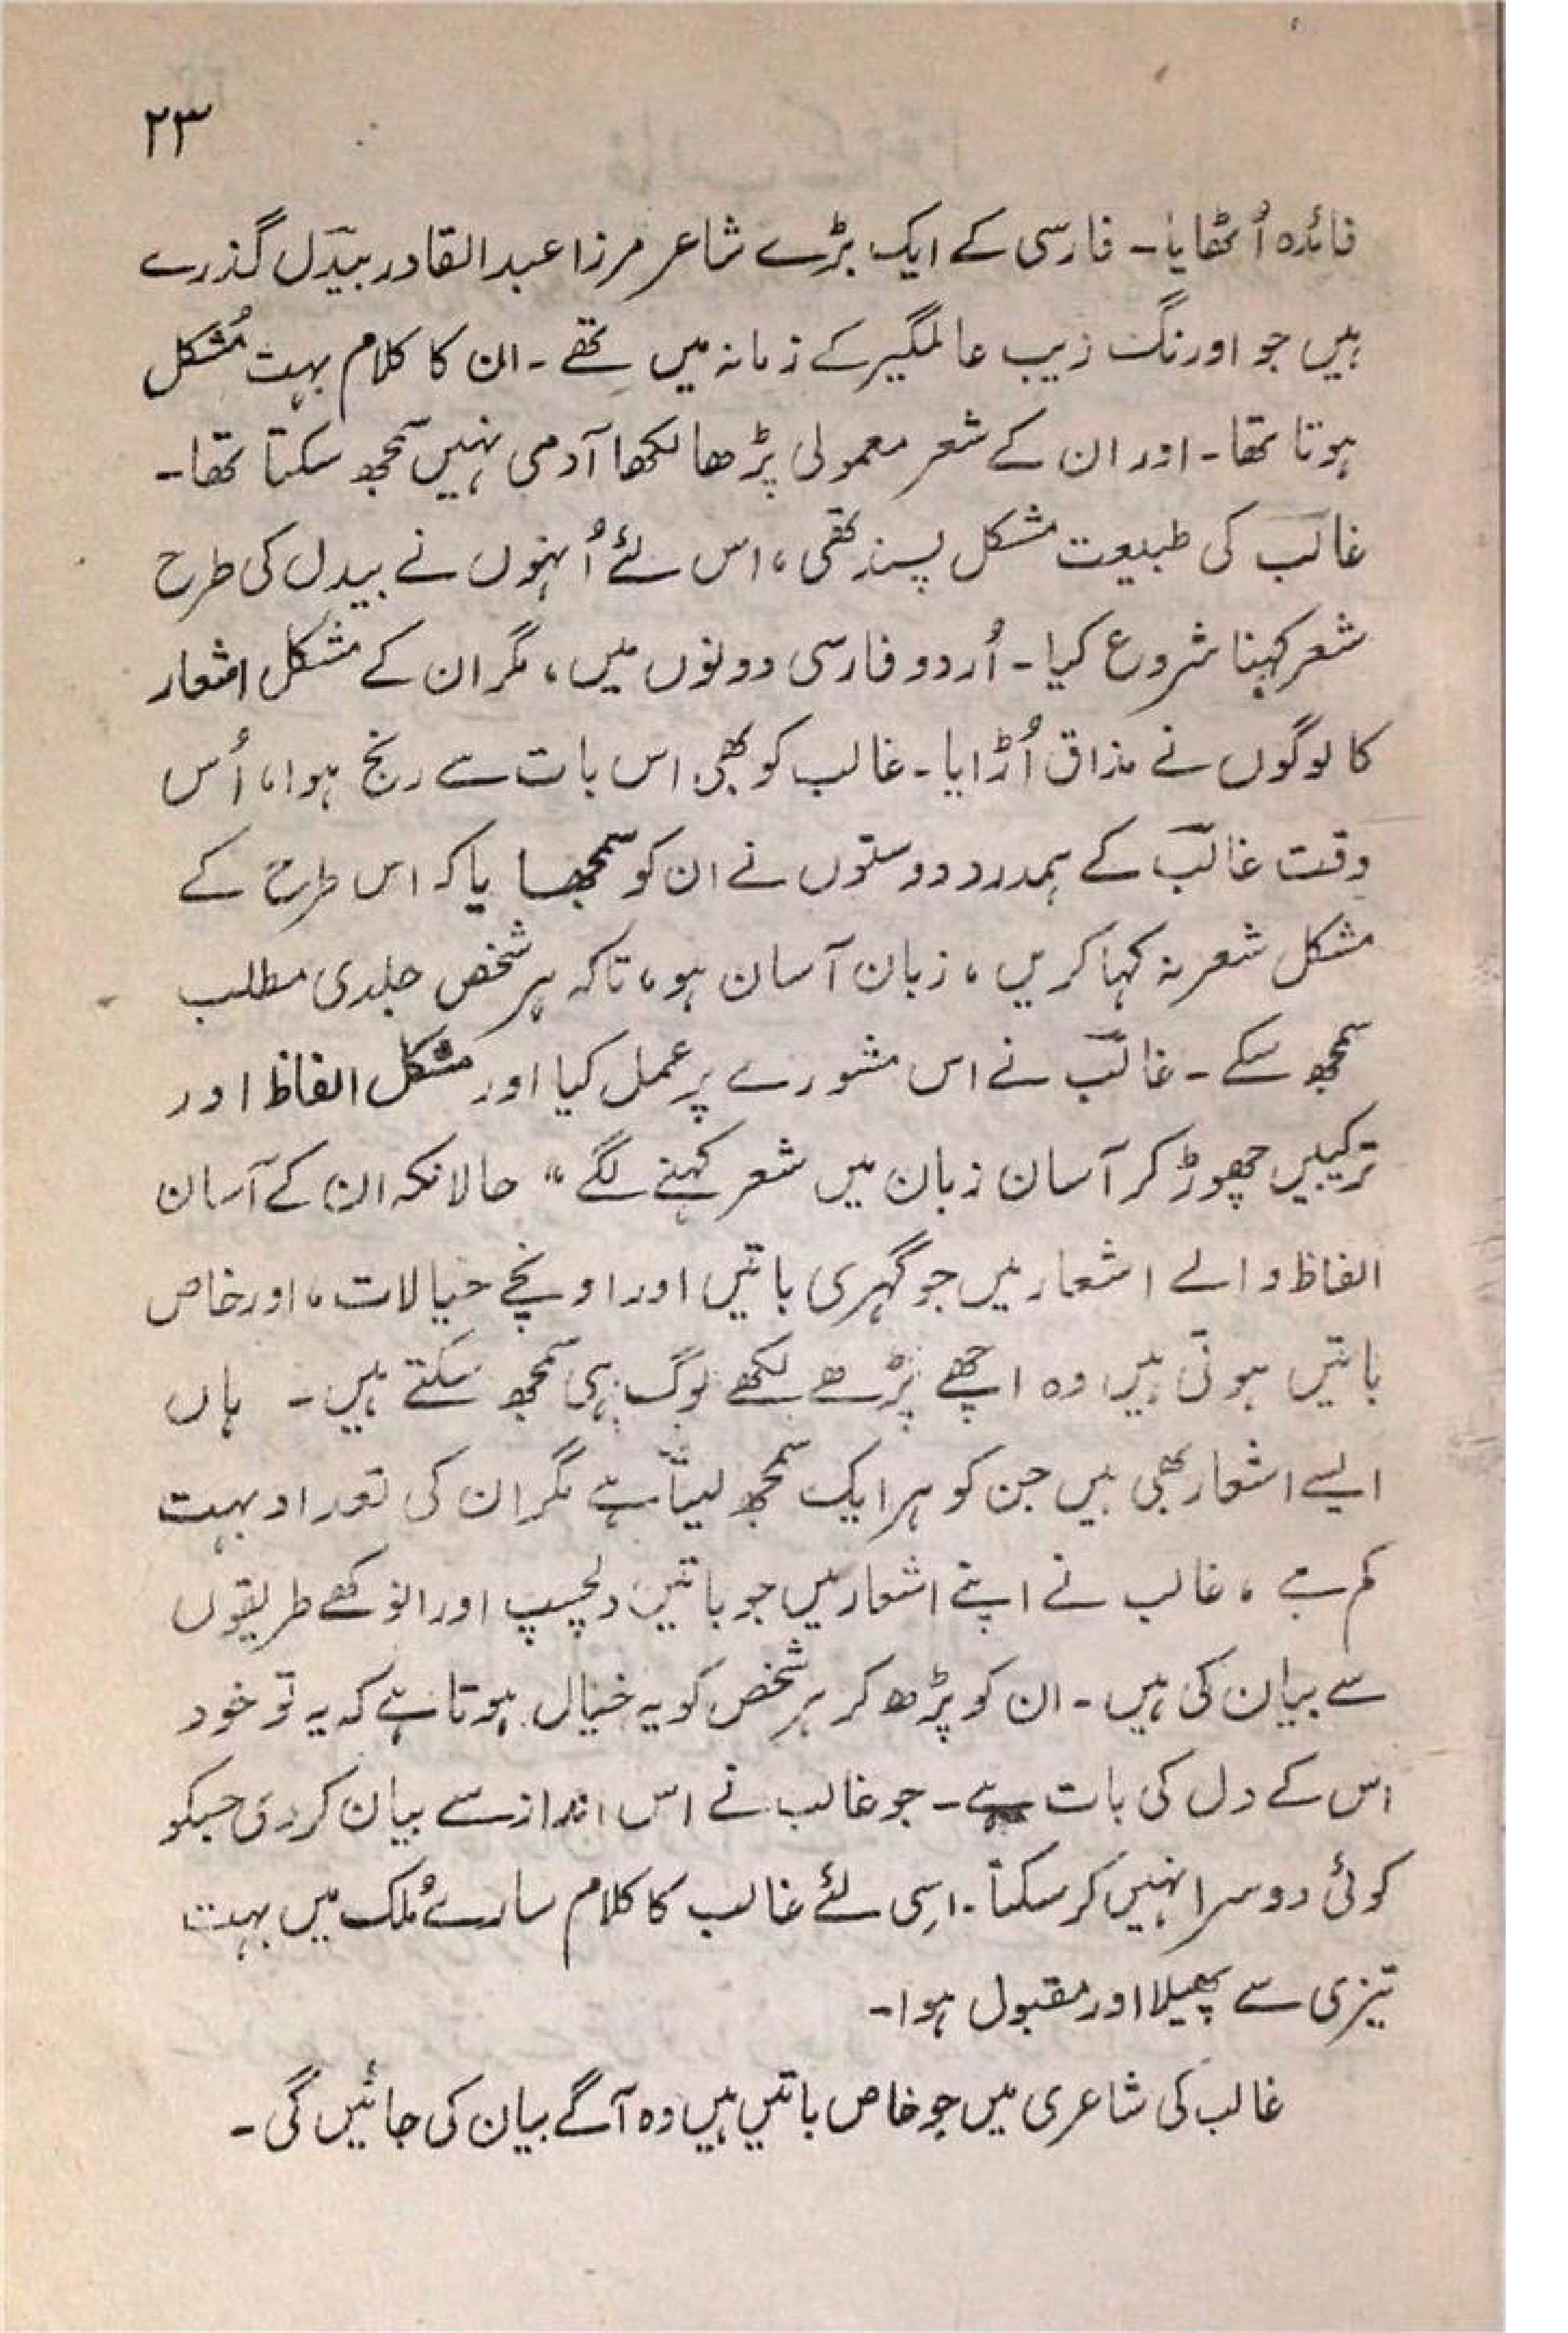 ۲۳
فائدہ اُٹھایا۔ فارسی کے ایک بڑے شاعر مرزا عبدالقادر بیدؔل گذرے
ہیں جو اورنگ زیب عالمگیر کے زمانہ میں تھے۔ ان کا کلام بہت مُشکل
ہوتا تھا۔ اور ان کے شعر معمولی پڑھا لکھا آدمی نہیں سمجھ سکتا تھا۔
غالبؔ کی طبیعت مشکل پسند تھی، اس لئے اُنہوں نے بیدل کی طرح
شعر کہنا شروع کیا۔ اُردو فارسی دونوں میں، مگر ان کے مشکل اشعار
کا لوگوں نے مذاق اُڑایا۔ غالب کو بھی اس بات سے رنج ہوا، اُس
وقت غالبؔ کے ہمدرد دوستوں نے ان کو سمجھایا کہ اس طرح کے
مشکل شعر نہ کہا کریں، زبان آسان ہو، تاکہ ہر شخص جلدی مطلب
سمجھ سکے۔ غالبؔ نے اس مشورے پر عمل کیا اور مشکل الفاظ اور
ترکیبیں چھوڑ کر آسان زبان میں شعر کہنے لگے“ حالانکہ ان کے آسان
الفاظ والے اشعار میں جو گہری باتیں اور اونچے خیالات، اور خاص
باتیں ہوتی ہیں وہ اچھے پڑھے لکھے لوگ ہی سمجھ سکتے ہیں۔ ہاں
ایسے اشعار بھی ہیں جن کو ہر ایک سمجھ لیتا ہے مگر ان کی تعداد بہت
کم ہے، غالب نے اپنے اشعار میں جو باتیں دلچسپ اور انوکھے طریقوں
سے بیان کی ہیں۔ ان کو پڑھ کر ہر شخص کو یہ خیال ہوتا ہے کہ یہ تو خود
اس کے دل کی بات ہے۔ جو غالب نے اس انداز سے بیان کر دی جسکو
کوئی دوسرا نہیں کر سکتا۔ اسِی لئے غالب کا کلام سارے مُلک میں بہت
تیزی سے پھیلا اور مقبول ہوا۔
غالب کی شاعری میں جو خاص باتیں ہیں وہ آگے بیان کی جائیں گی۔